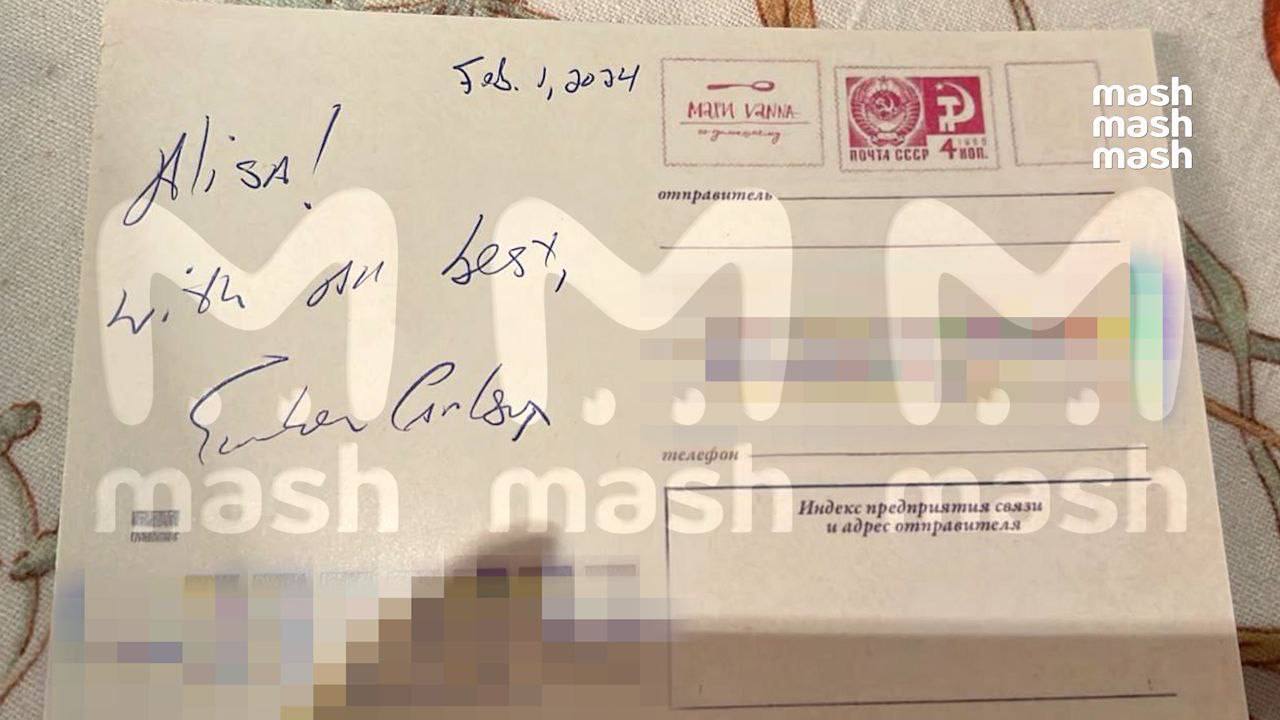 Feb. 1, 2024
Alisa!
with all best,
Tucker Carlson
Mari Vanna
ПОЧТА СССР 4 КОП.
1966
отправитель
телефон
Индекс предприятия связи
и адрес отправителя
mash
mash
mash
M.M.M
mash mash mash